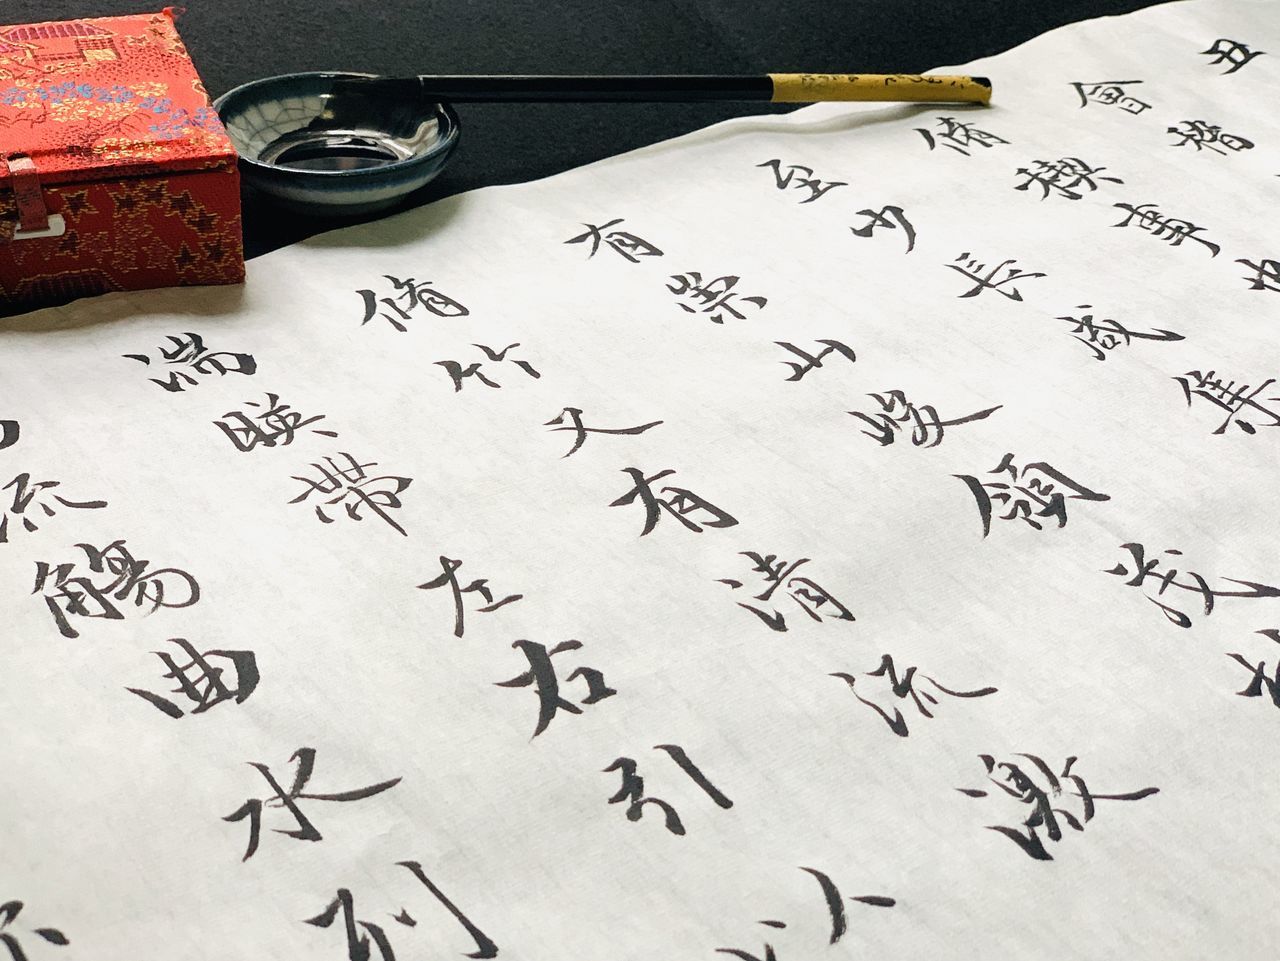 丑
會稽
脩稧事也
至少長咸集
有崇山峻領茂
脩竹又有清流激
湍暎帶左右引以
流觴曲水列